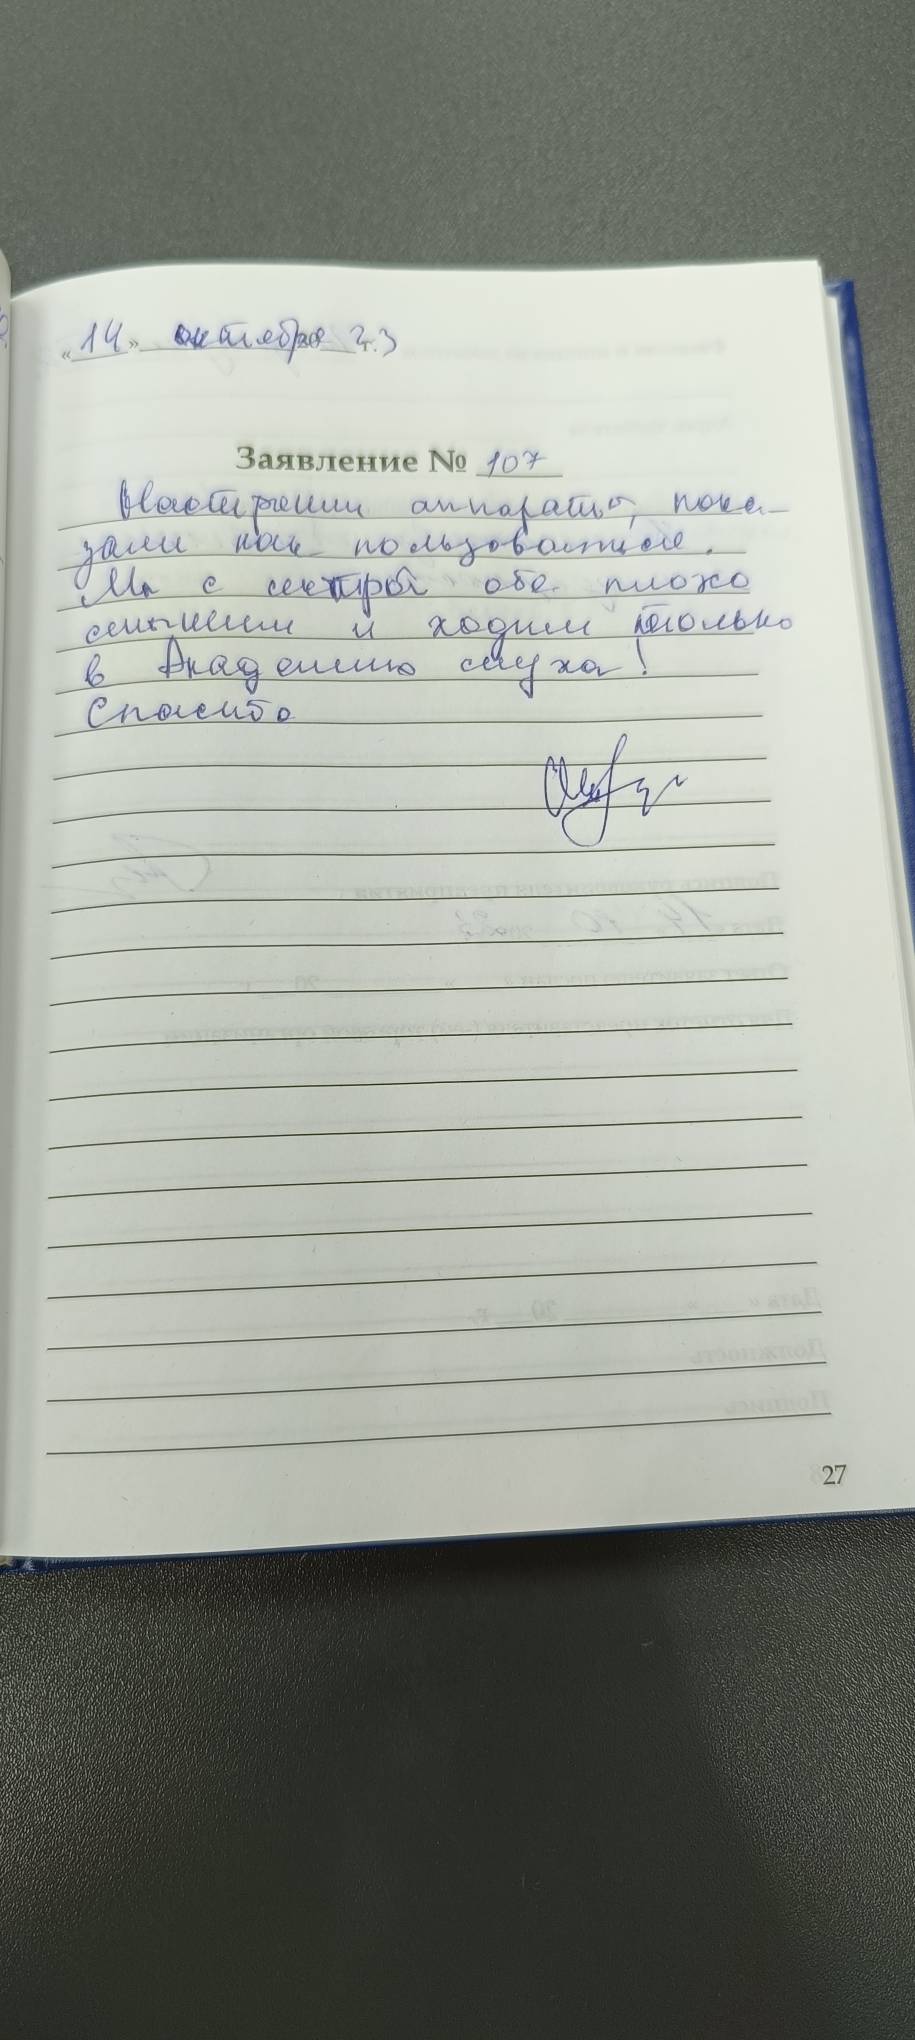 «14» октября 23 г.
Заявление № 107
Настроили аппараты, пока-
зали как пользоваться.
Мы с сестрой обе плохо
слышим и ходим только
в Академию слуха!
Спасибо
27